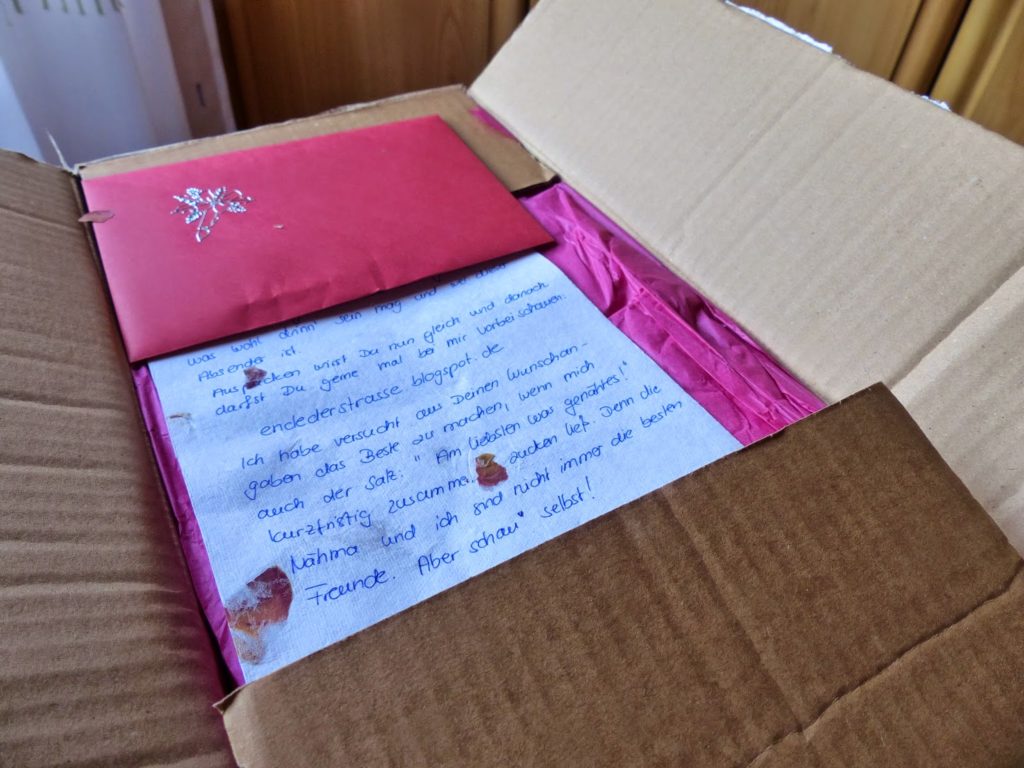 was wohl drinn' sein mag und wer
Absender ist.
Auspacken wirst Du nun gleich und danach
darfst Du gerne mal bei mir vorbei schauen:
endederstrasse.blogspot.de
Ich habe versucht aus Deinen Wunschan-
gaben das Beste zu machen, wenn mich
auch der Satz: "Am liebsten was genähtes!"
kurzfristig zusammen zucken ließ. Denn die
Nähma und ich sind nicht immer die besten
Freunde. Aber schau' selbst!